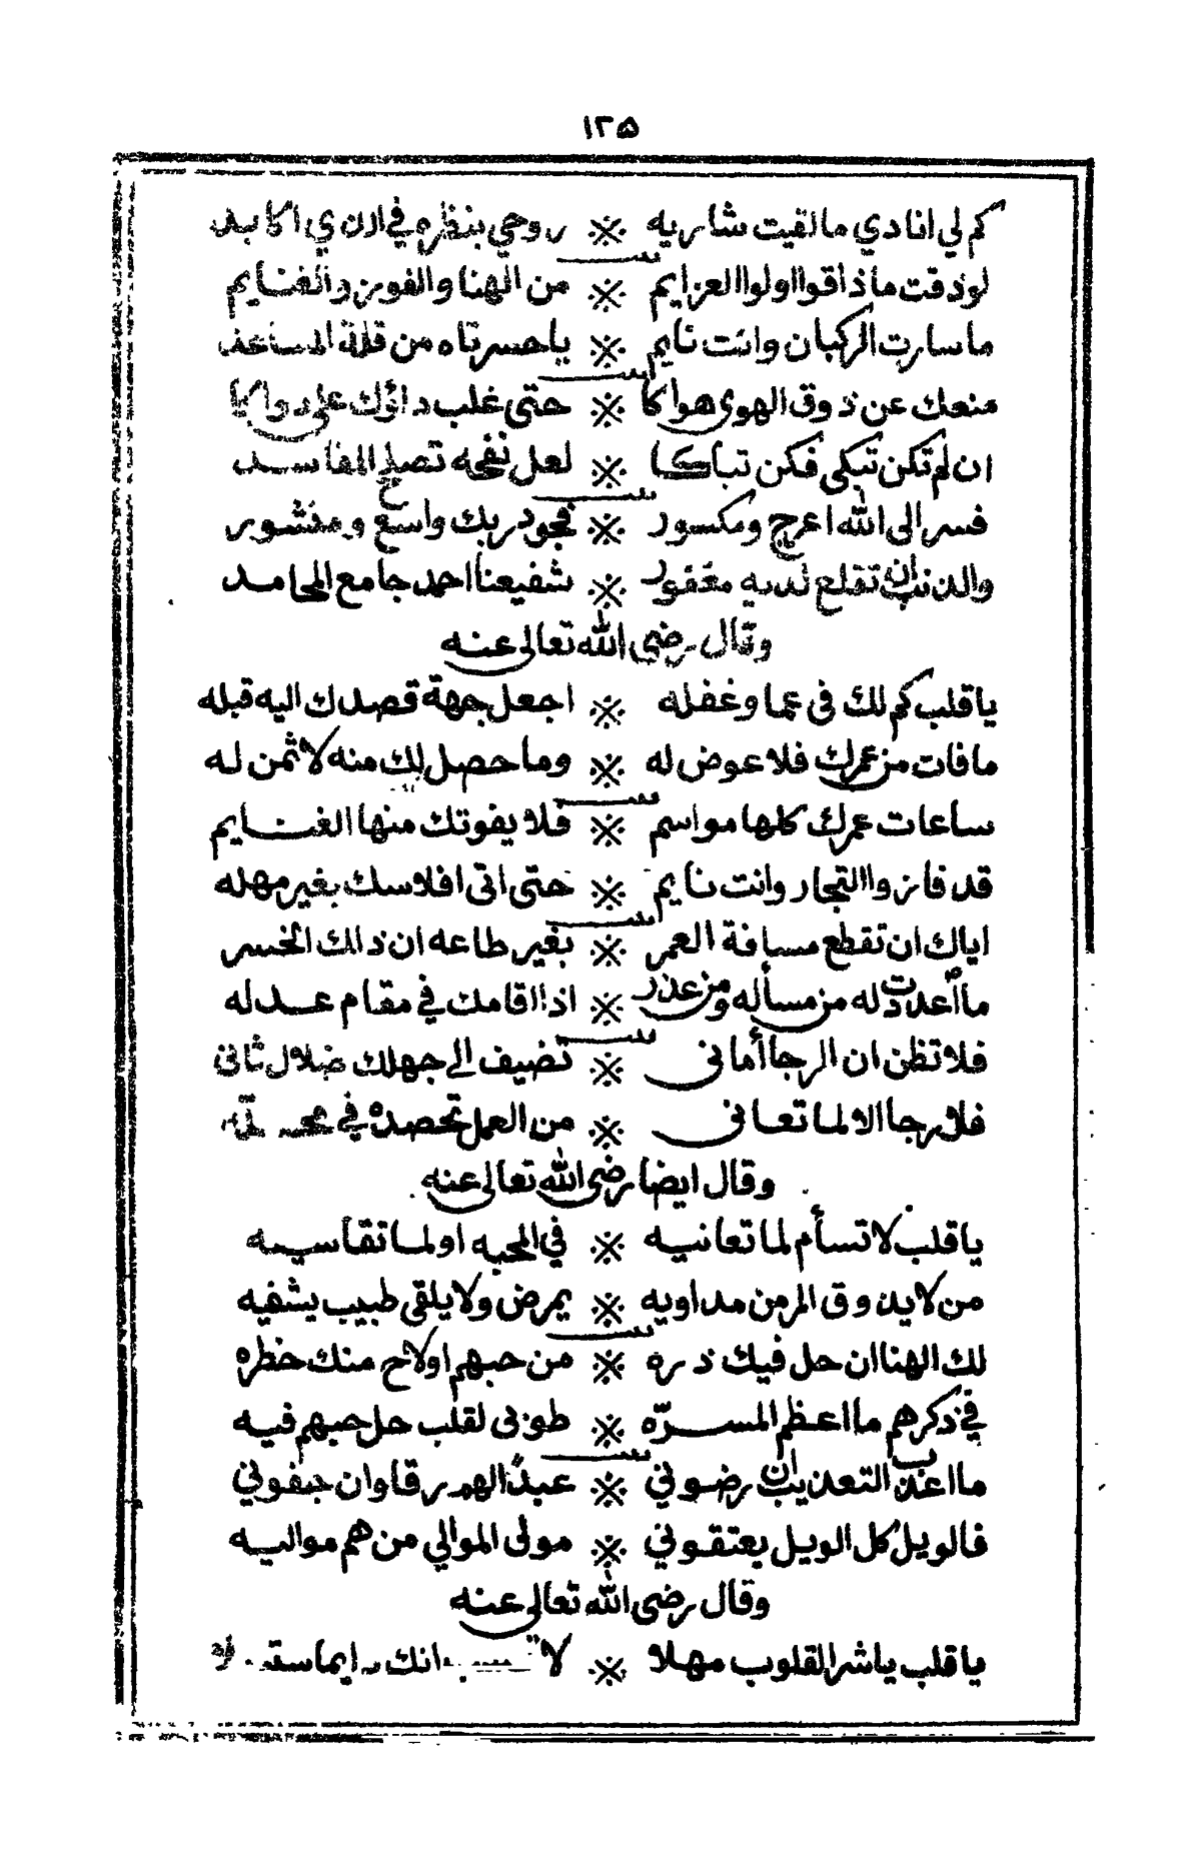 ١٢٥
كم لي انادي ما لقيت شاريه ※ روحي بنظره في
لو ذقت ما ذاقوا اولوا العزايم ※ من الهنا والفوز والغنايم
ما سارت الركبان وانت نايم ※ ياحسرتاه من قلة المساعد
منعك عن ذوق الهوى هواكا ※ حتى غلب داؤك على دواكا
ان لم تكن تبكى فكن تباكا ※ لعل نفحه تصلح المفاسد
فسر الى الله اعرج ومكسور ※ فجود ربك واسع ومنشور
والذنب ان تقلع لديه مغفور ※ شفيعنا احمد جامع المحامد
وقال رضي الله تعالى عنه
يا قلب كم لك فى عما وغفله ※ اجعل جهة قصدك اليه قبله
ما فات من عمرك فلا عوض له ※ وما حصل لك منه لا ثمن له
ساعات عمرك كلها مواسم ※ فلا يفوتك منها الغنايم
قد فازوا التجار وانت نايم ※ حتى اتى افلاسك بغير مهله
اياك ان تقطع مسافة العمر ※ بغير طاعه ان ذلك الخسر
ما أعددت له من مسأله ومن عذر ※ اذا اقامك في مقام عدله
فلا تظن ان الرجا أمانى ※ تضيف الى جهلك ضلال ثانى
فلا رجا الا لما تعانى ※ من العمل تحصده في
وقال ايضا رضى الله تعالى عنه
يا قلب لا تسأم لما تعانيه ※ في المحبه او لما تقاسيه
من لا يذوق المر من مداويه ※ يمرض ولا يلقى طبيب يشفيه
لك الهنا ان حل فيك ذره ※ من حبهم او لاح منك خطره
في ذكرهم ما اعظم المسرّه ※ طوبى لقلب حل حبهم فيه
ما اعذب التعذيب ان رضوني ※ عبدٌ الهم رقا وان جفوني
فالويل كل الويل يعتقوني ※ مولى الموالي من هم مواليه
وقال رضى الله تعالى عنه
يا قلب يا شر القلوب مهلا ※ لا انك